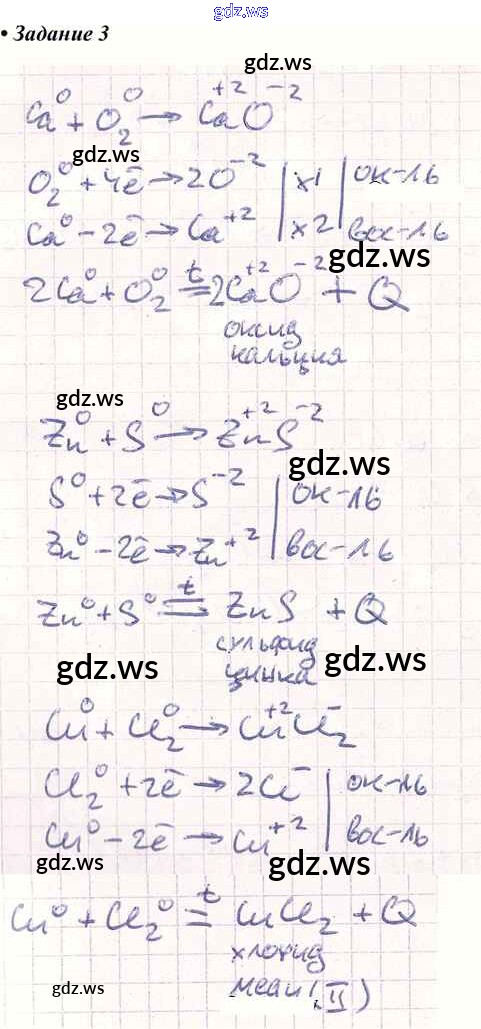 gdz.ws
• Задание 3
gdz.ws
Ca⁰ + O₂⁰ → Ca⁺²O⁻²
gdz.ws
O₂⁰ + 4ē → 2O⁻² | x1 | ок-ль
Ca⁰ - 2ē → Ca⁺² | x2 | вос-ль
gdz.ws
2Ca⁰ + O₂⁰ =ᵗ 2Ca⁺²O⁻² + Q
оксид
кальция
gdz.ws
Zn⁰ + S⁰ → Zn⁺²S⁻²
gdz.ws
S⁰ + 2ē → S⁻² | ок-ль
Zn⁰ - 2ē → Zn⁺² | вос-ль
Zn⁰ + S⁰ =ᵗ ZnS + Q
сульфид
цинка
gdz.ws
gdz.ws
Cu⁰ + Cl₂⁰ → Cu⁺²Cl₂⁻
Cl₂⁰ + 2ē → 2Cl⁻ | ок-ль
Cu⁰ - 2ē → Cu⁺² | вос-ль
gdz.ws
gdz.ws
Cu⁰ + Cl₂⁰ =ᵗ CuCl₂ + Q
хлорид
меди (II)
gdz.ws
gdz.ws